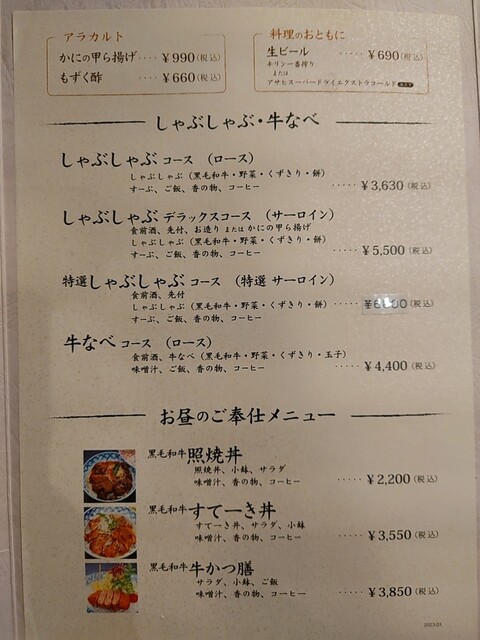 アラカルト
かにの甲ら揚げ ‥‥ ￥990 (税込)
もずく酢 ‥‥‥‥ ￥660 (税込)
料理のおともに
生ビール ‥‥‥‥ ￥690 (税込)
キリン一番搾り
または
アサヒスーパードライエクストラコールド
しゃぶしゃぶ・牛なべ
しゃぶしゃぶ コース （ロース）
しゃぶしゃぶ（黒毛和牛・野菜・くずきり・餅）
すーぷ、ご飯、香の物、コーヒー ‥‥‥ ￥3,630 (税込)
しゃぶしゃぶ デラックスコース （サーロイン）
食前酒、先付、お造り または かにの甲ら揚げ
しゃぶしゃぶ（黒毛和牛・野菜・くずきり・餅）
すーぷ、ご飯、香の物、コーヒー ‥‥‥ ￥5,500 (税込)
特選 しゃぶしゃぶ コース （特選 サーロイン）
食前酒、先付
しゃぶしゃぶ（黒毛和牛・野菜・くずきり・餅） ‥‥‥ (税込)
すーぷ、ご飯、香の物、コーヒー
牛なべ コース （ロース）
食前酒、牛なべ（黒毛和牛・野菜・くずきり・玉子）
味噌汁、ご飯、香の物、コーヒー ‥‥‥ ￥4,400 (税込)
お昼のご奉仕メニュー
黒毛和牛 照焼丼
照焼丼、小鉢、サラダ
味噌汁、香の物、コーヒー ‥‥‥ ￥2,200 (税込)
黒毛和牛 すてーき丼
すてーき丼、サラダ、小鉢
味噌汁、香の物、コーヒー ‥‥‥ ￥3,550 (税込)
黒毛和牛 牛かつ膳
サラダ、小鉢、ご飯
味噌汁、香の物、コーヒー ‥‥‥ ￥3,850 (税込)
2023.01